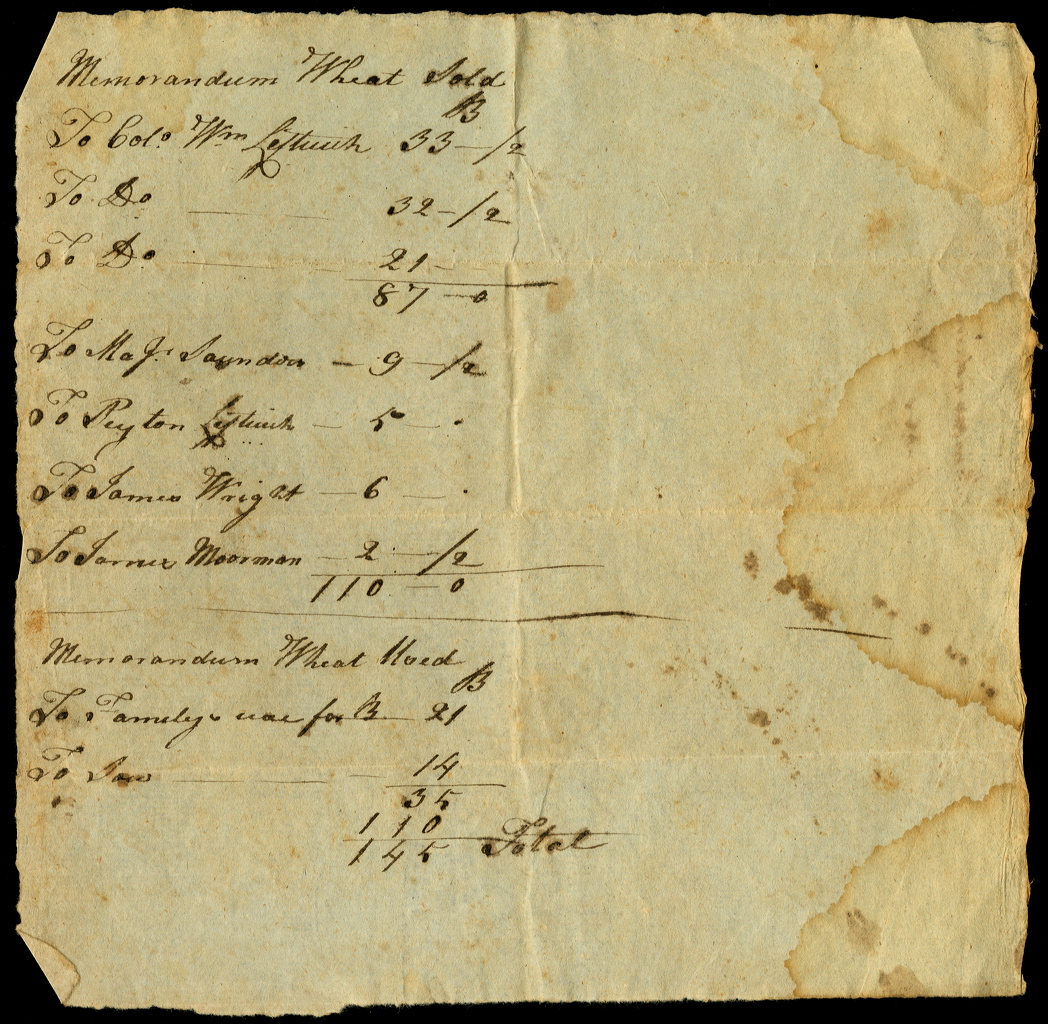 Memorandum Wheat Sold
B
To Colo. Wm Leftwich 33 - /2
To Do 32 - /2
To Do 21 -
87 - 0
To Majr. Saunders - 9 - /2
To Peyton Leftwich - 5 - .
To James Wright - 6 - .
To James Moorman - 2 - /2
110 - 0
Memorandum Wheat Used
B
To Familys use for B - 21
To Sow 14
35
110
145 Total